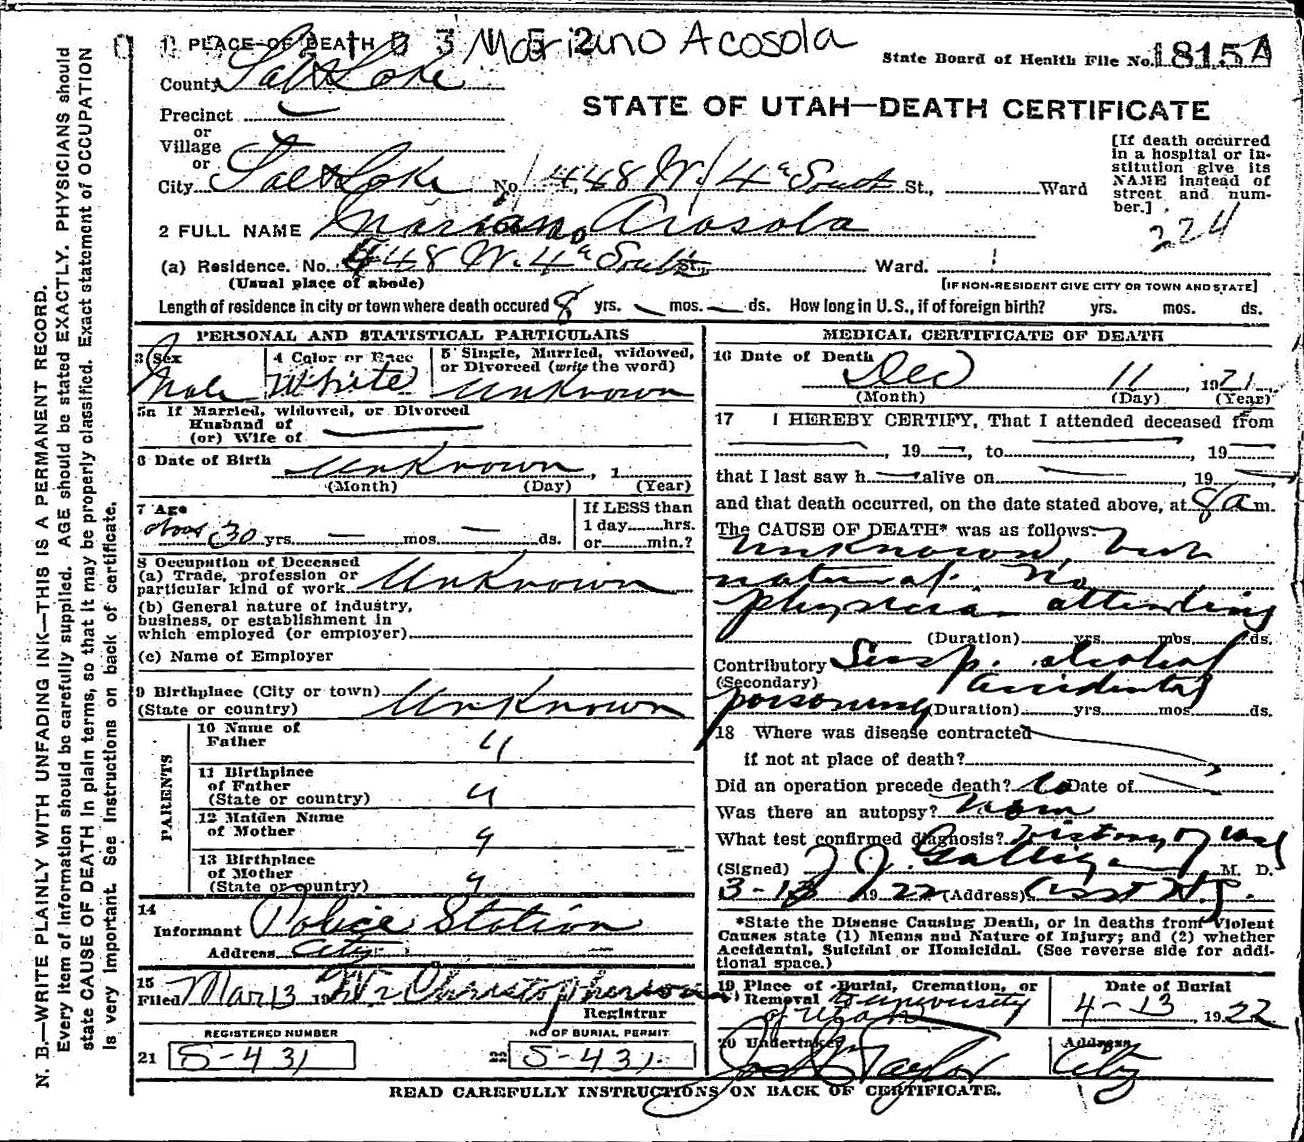 1 PLACE OF DEATH Mariano Acosola
State Board of Health File No. 1815A
County Salt Lake
STATE OF UTAH—DEATH CERTIFICATE
Precinct
or
Village
or
City Salt Lake No. 448 W 4th South St., Ward
[If death occurred in a hospital or in-
stitution give its
NAME instead of
street and num-
ber.]
224
2 FULL NAME Mariano Acosola
(a) Residence. No. 448 W. 4th South St., Ward.
(Usual place of abode) [IF NON-RESIDENT GIVE CITY OR TOWN AND STATE]
Length of residence in city or town where death occured 8 yrs. — mos. — ds. How long in U.S., if of foreign birth? yrs. mos. ds.
PERSONAL AND STATISTICAL PARTICULARS
3 Sex
Male
4 Color or Race
White
5 Single, Married, widowed,
or Divorced (write the word)
Unknown
5a If Married, widowed, or Divorced
Husband of
(or) Wife of
6 Date of Birth Unknown, 1
(Month) (Day) (Year)
7 Age
about 30 yrs. — mos. — ds.
If LESS than
1 day hrs.
or min.?
8 Occupation of Deceased
(a) Trade, profession or
particular kind of work Unknown
(b) General nature of industry,
business, or establishment in
which employed (or employer)
(c) Name of Employer
9 Birthplace (City or town)
(State or country) Unknown
PARENTS
10 Name of
Father U
11 Birthplace
of Father
(State or country) U
12 Maiden Name
of Mother
13 Birthplace
of Mother
(State or country)
14
Informant Police Station
Address City
15
Filed Mar 13 19 Christopherson
Registrar
REGISTERED NUMBER
21 S-431
NO OF BURIAL PERMIT
22 S-431
MEDICAL CERTIFICATE OF DEATH
16 Date of Death
Dec 11, 1921
(Month) (Day) (Year)
17 I HEREBY CERTIFY, That I attended deceased from
, 19 —, to , 19 —
that I last saw h — alive on —, 19 —
and that death occurred, on the date stated above, at 8 a m.
The CAUSE OF DEATH* was as follows:
Unknown, but
natural. No
physician attending
(Duration) yrs. mos. ds.
Contributory Susp. alcohol
(Secondary) accidental
poisoning (Duration) yrs. mos. ds.
18 Where was disease contracted
if not at place of death?
Did an operation precede death? No Date of
Was there an autopsy?
What test confirmed diagnosis? History of case
(Signed) J. J. Galligan M. D.
3-13 1922 (Address)
*State the Disease Causing Death, or in deaths from Violent
Causes state (1) Means and Nature of Injury; and (2) whether
Accidental, Suicidal or Homicidal. (See reverse side for addi-
tional space.)
19 Place of Burial, Cremation, or
Removal to University
of Utah
Date of Burial
4-13, 1922
20 Undertaker
Taylor
Address
City
READ CAREFULLY INSTRUCTIONS ON BACK OF CERTIFICATE.
N. B.—WRITE PLAINLY WITH UNFADING INK—THIS IS A PERMANENT RECORD.
Every item of information should be carefully supplied. AGE should be stated EXACTLY. PHYSICIANS should
state CAUSE OF DEATH in plain terms, so that it may be properly classified. Exact statement of OCCUPATION
is very important. See Instructions on back of certificate.